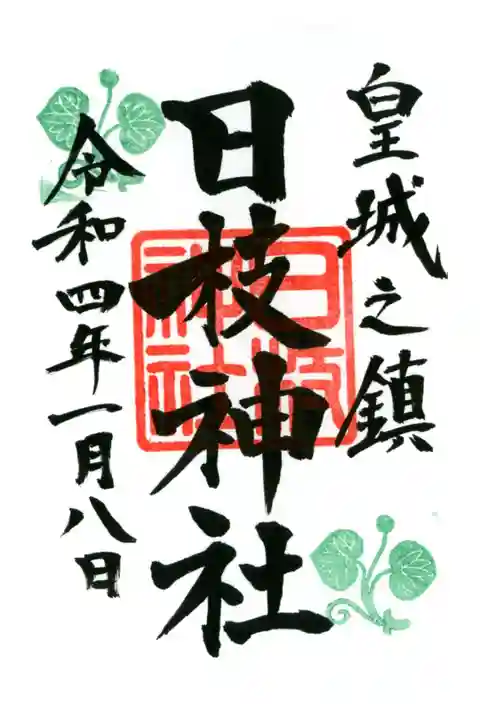 皇城之鎮
日枝神社
日枝神社
令和四年一月八日